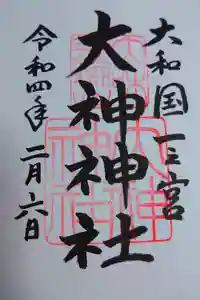 大和国一之宮
大神神社
令和四年二月六日